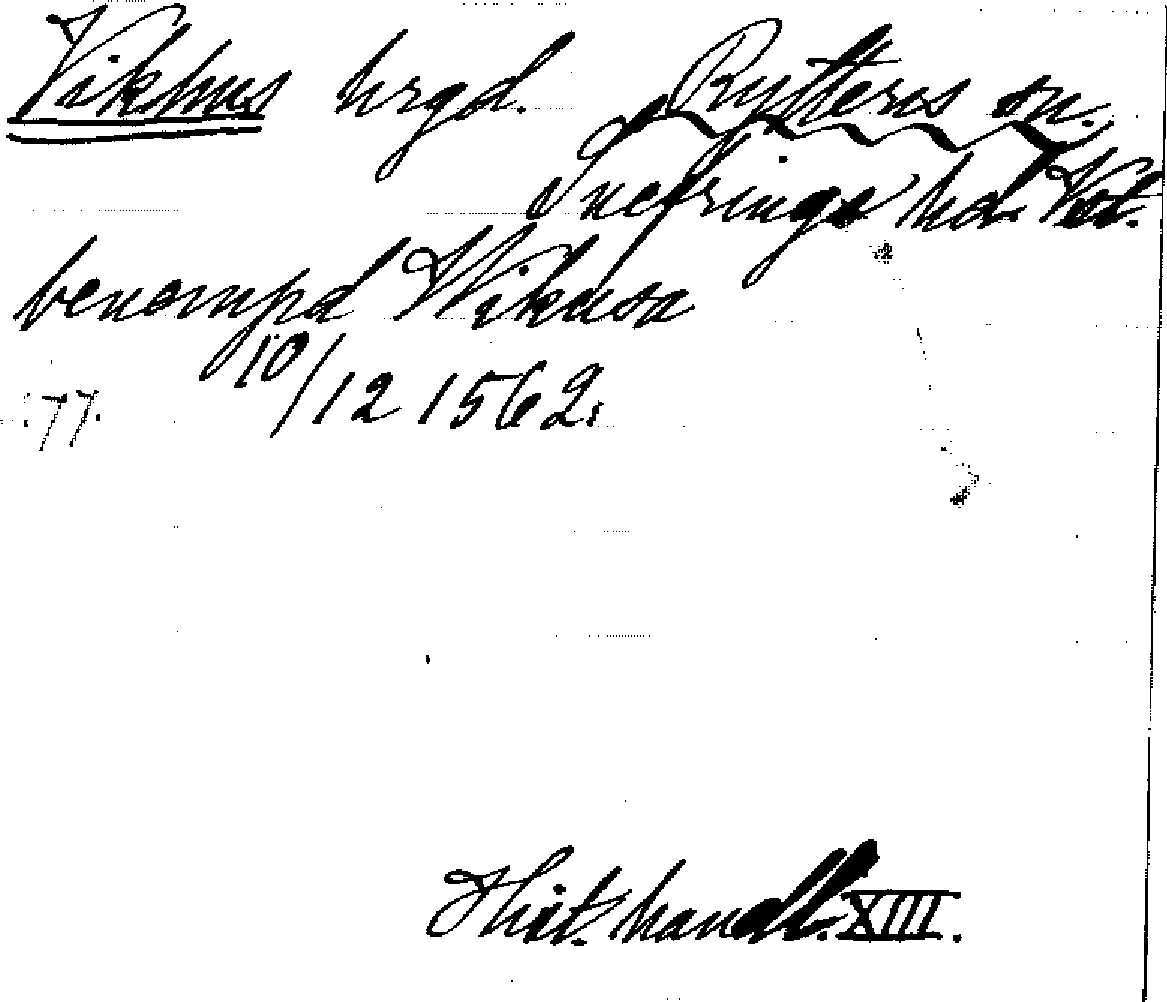 Vikhus hrgd. Rytterns sn.
Snefringe hd. Vstm.
benempd Wikusa
10/12 1562.
:77.
Hist. handl. XIII.